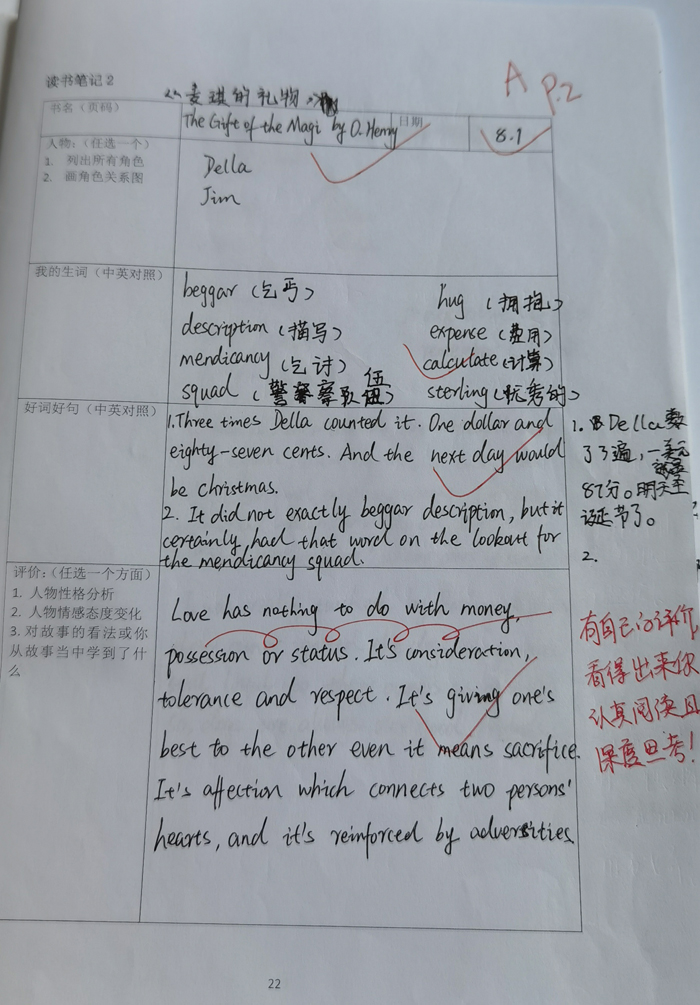 读书笔记2
A P.2
《麦琪的礼物》
书名(页码)
The Gift of the Magi by O. Henry
日期
8.1
人物:(任选一个)
1. 列出所有角色
2. 画角色关系图
Della
Jim
我的生词(中英对照)
beggar (乞丐)
hug (拥抱)
description (描写)
expense (费用)
mendicancy (乞讨)
calculate (计算)
squad (警察队伍)
sterling (优秀的)
好词好句(中英对照)
1. Three times Della counted it. One dollar and
eighty-seven cents. And the next day would
be christmas.
2. It did not exactly beggar description, but it
certainly had that word on the lookout for
the mendicancy squad.
1. Della数
了3遍,一美元
87分。明天圣
诞节了。
2.
评价:(任选一个方面)
1. 人物性格分析
2. 人物情感态度变化
3. 对故事的看法或你
从故事当中学到了什
么
Love has nothing to do with money,
possession or status. It's consideration,
tolerance and respect. It's giving one's
best to the other even it means sacrifice.
It's affection which connects two persons'
hearts, and it's reinforced by adversities
有自己的评价,
看得出来你
认真阅读且
深度思考!
22